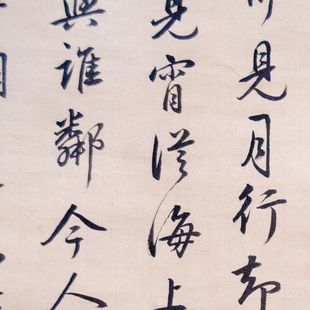 見月行却
見宵從海上
與誰鄰今人